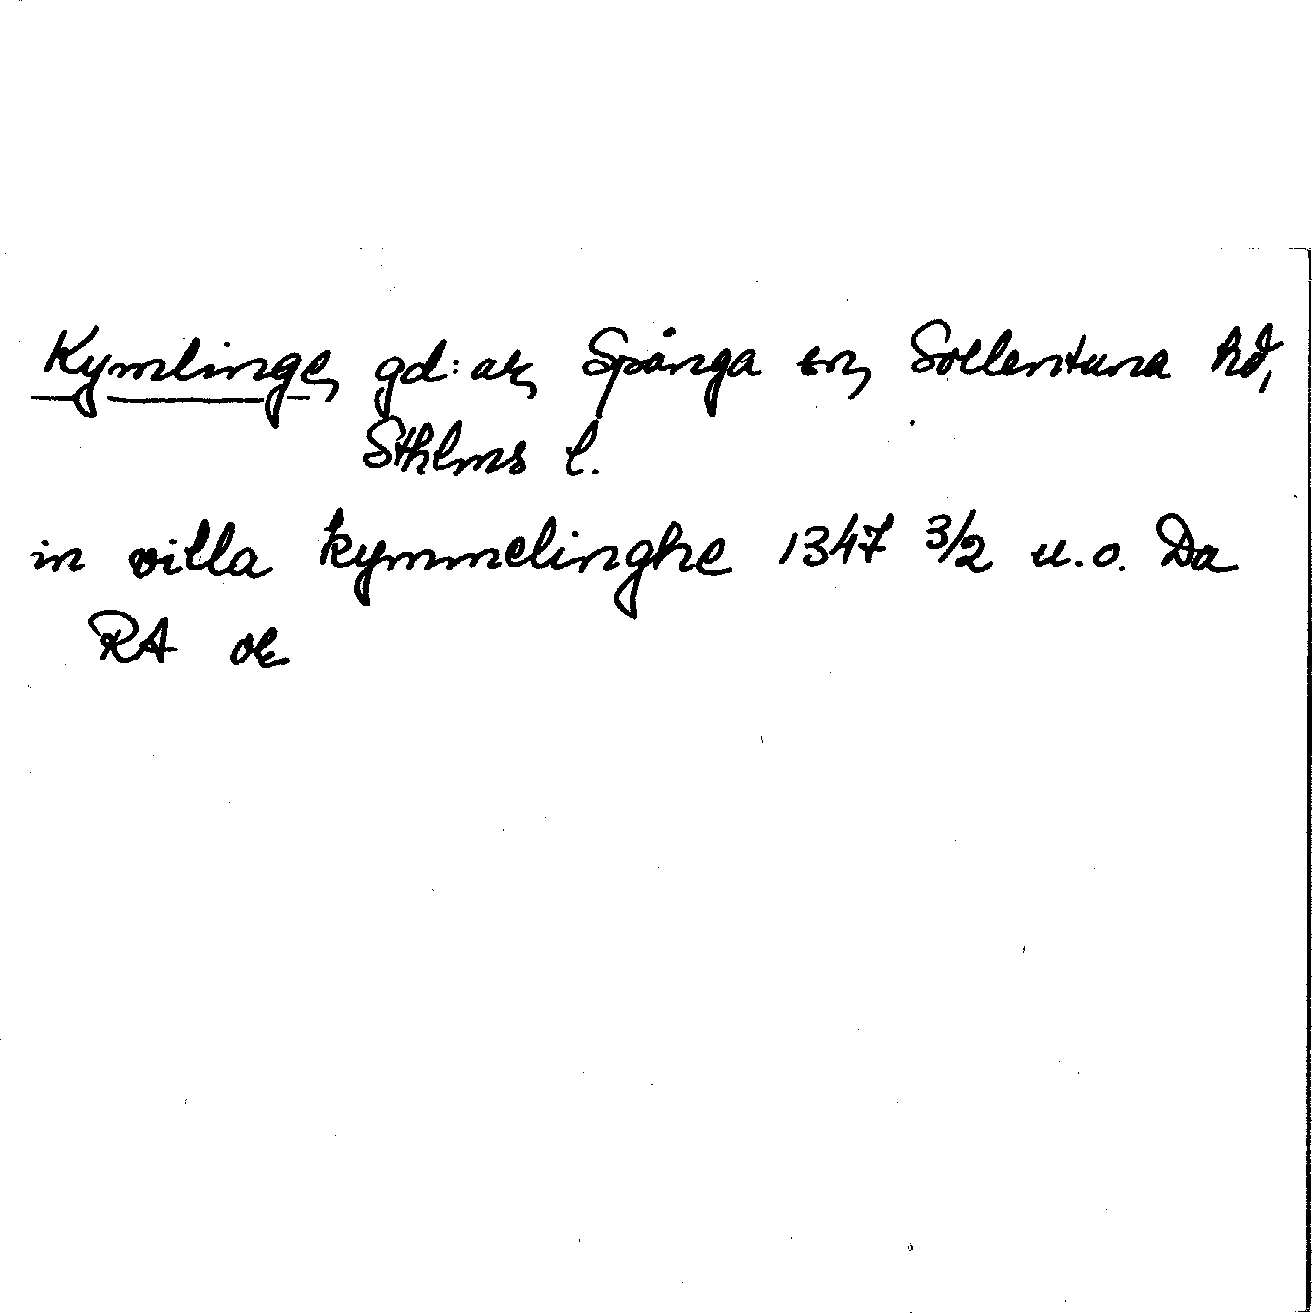 Kymlinge, gd:ar, Spånga sn, Sollentuna hd,
Sthlms l.
in villa kymmelinghe 1347 3/2 u.o. Da
RA or